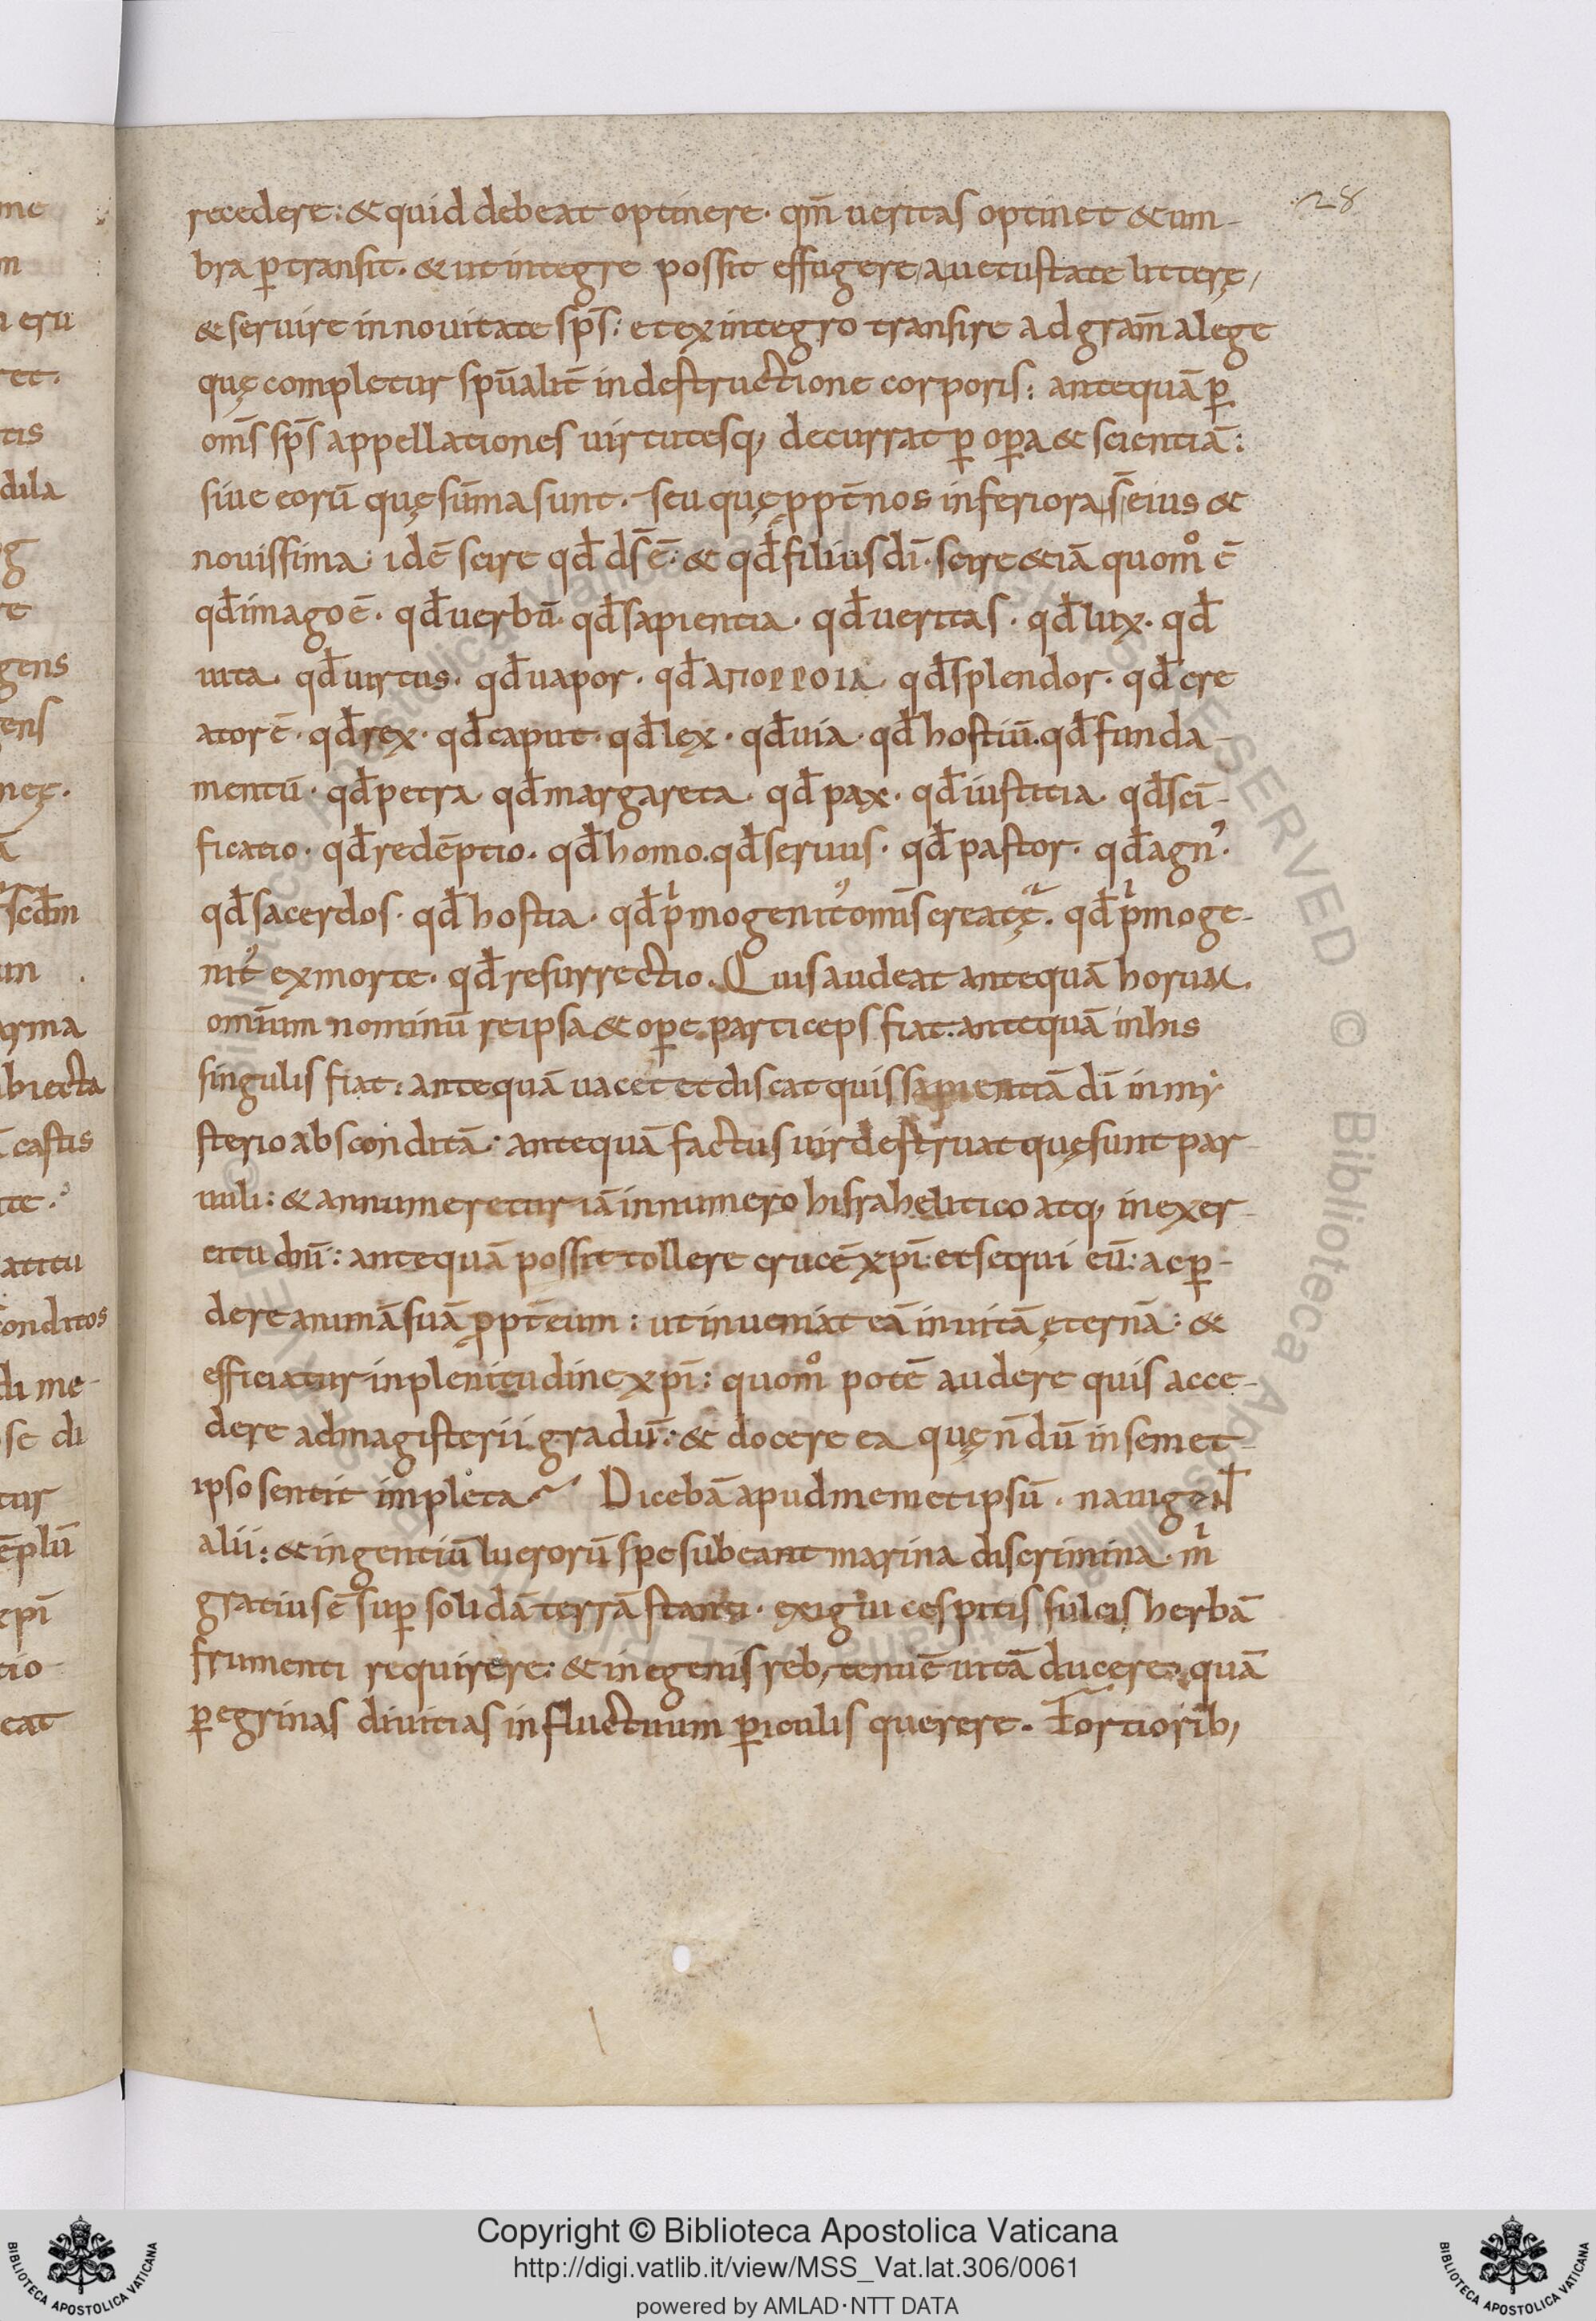 28
recedere: & quid debeat optinere· qm̄ ueritas optinet & um-
bra ꝑtransit· & ut integre possit effugere a uetustate litterę,
& seruire in nouitate sp̄s: et ex integro transire ad gram̄ a lege
quę completur spūalit̄ in destructione corporis: antequā ꝑ
om̄s sp̄s appellationes uirtutesq, decurrat ꝑ oꝑa & scientiā:
siue eorū quę sūma sunt· seu quę ꝓpt̄ nos inferiora s̄ eius &
nouissima: idē scire qđ ds̄ ē: & qđ filius dī· scire &iā quom̊ ē
qđ imago ē· qđ uerbū· qđ sapientia· qđ ueritas· qđ lux· qđ
uita· qđ uirtus· qđ uapor· qđ ΑΠΟΡΡΟΙΑ· qđ splendor· qđ cre
ator ē· qđ rex· qđ caput· qđ lex· qđ uia· qđ hostiū· qđ funda-
mentū· qđ petra qđ margareta· qđ pax· qđ iustitia· qđ scī-
ficatio· qđ redēptio· qđ homo· qđ seruus· qđ pastor· qđ agn᾿·
qđ sacerdos· qđ hostia· qđ pͥmogenit᾿ omīs creatᷓę· qđ pͥmoge-
nit᾿ ex morte· qđ resurrectio· Quis audeat antequā horum
omīum nominū re ipsa & oꝑe particeps fiat: antequā in his
singulis fiat: antequā uacet et discat quis sapientiā dī in my
sterio absconditā: antequā factus uir destruat quę sunt par
uuli: & annumeretur iā in numero hisrahelitico atq, in exer-
citu dn̄i: antequā possit tollere crucē xp̄i: et sequi eū: ac ꝑ-
dere animā suā ꝓpt̄ eum: ut inueniat eā in uitā ęternā: &
efficiatur in plenitudine xp̄i: quom̊ potē audere quis acce-
dere ad magisterii gradū: & docere ea quę n̄dū in semet-
ipso sentit impleta Dicebā apud memetipsū· nauigent̄
alii: & ingentiū lucrorū spe subeant marina discrimina· mͥ
gratius ē suꝑ solidā terrā stanti· exigui cespitis sulcis herbā
frumenti requirere: & in egenis reb, tenuē uitā ducere, quā
ꝑegrinas diuitias in fluctuum ꝑiculis querere· Fortiorib,
Copyright © Biblioteca Apostolica Vaticana
http://digi.vatlib.it/view/MSS_Vat.lat.306/0061
powered by AMLAD·NTT DATA
BIBLIOTECA APOSTOLICA VATICANA
BIBLIOTECA APOSTOLICA VATICANA